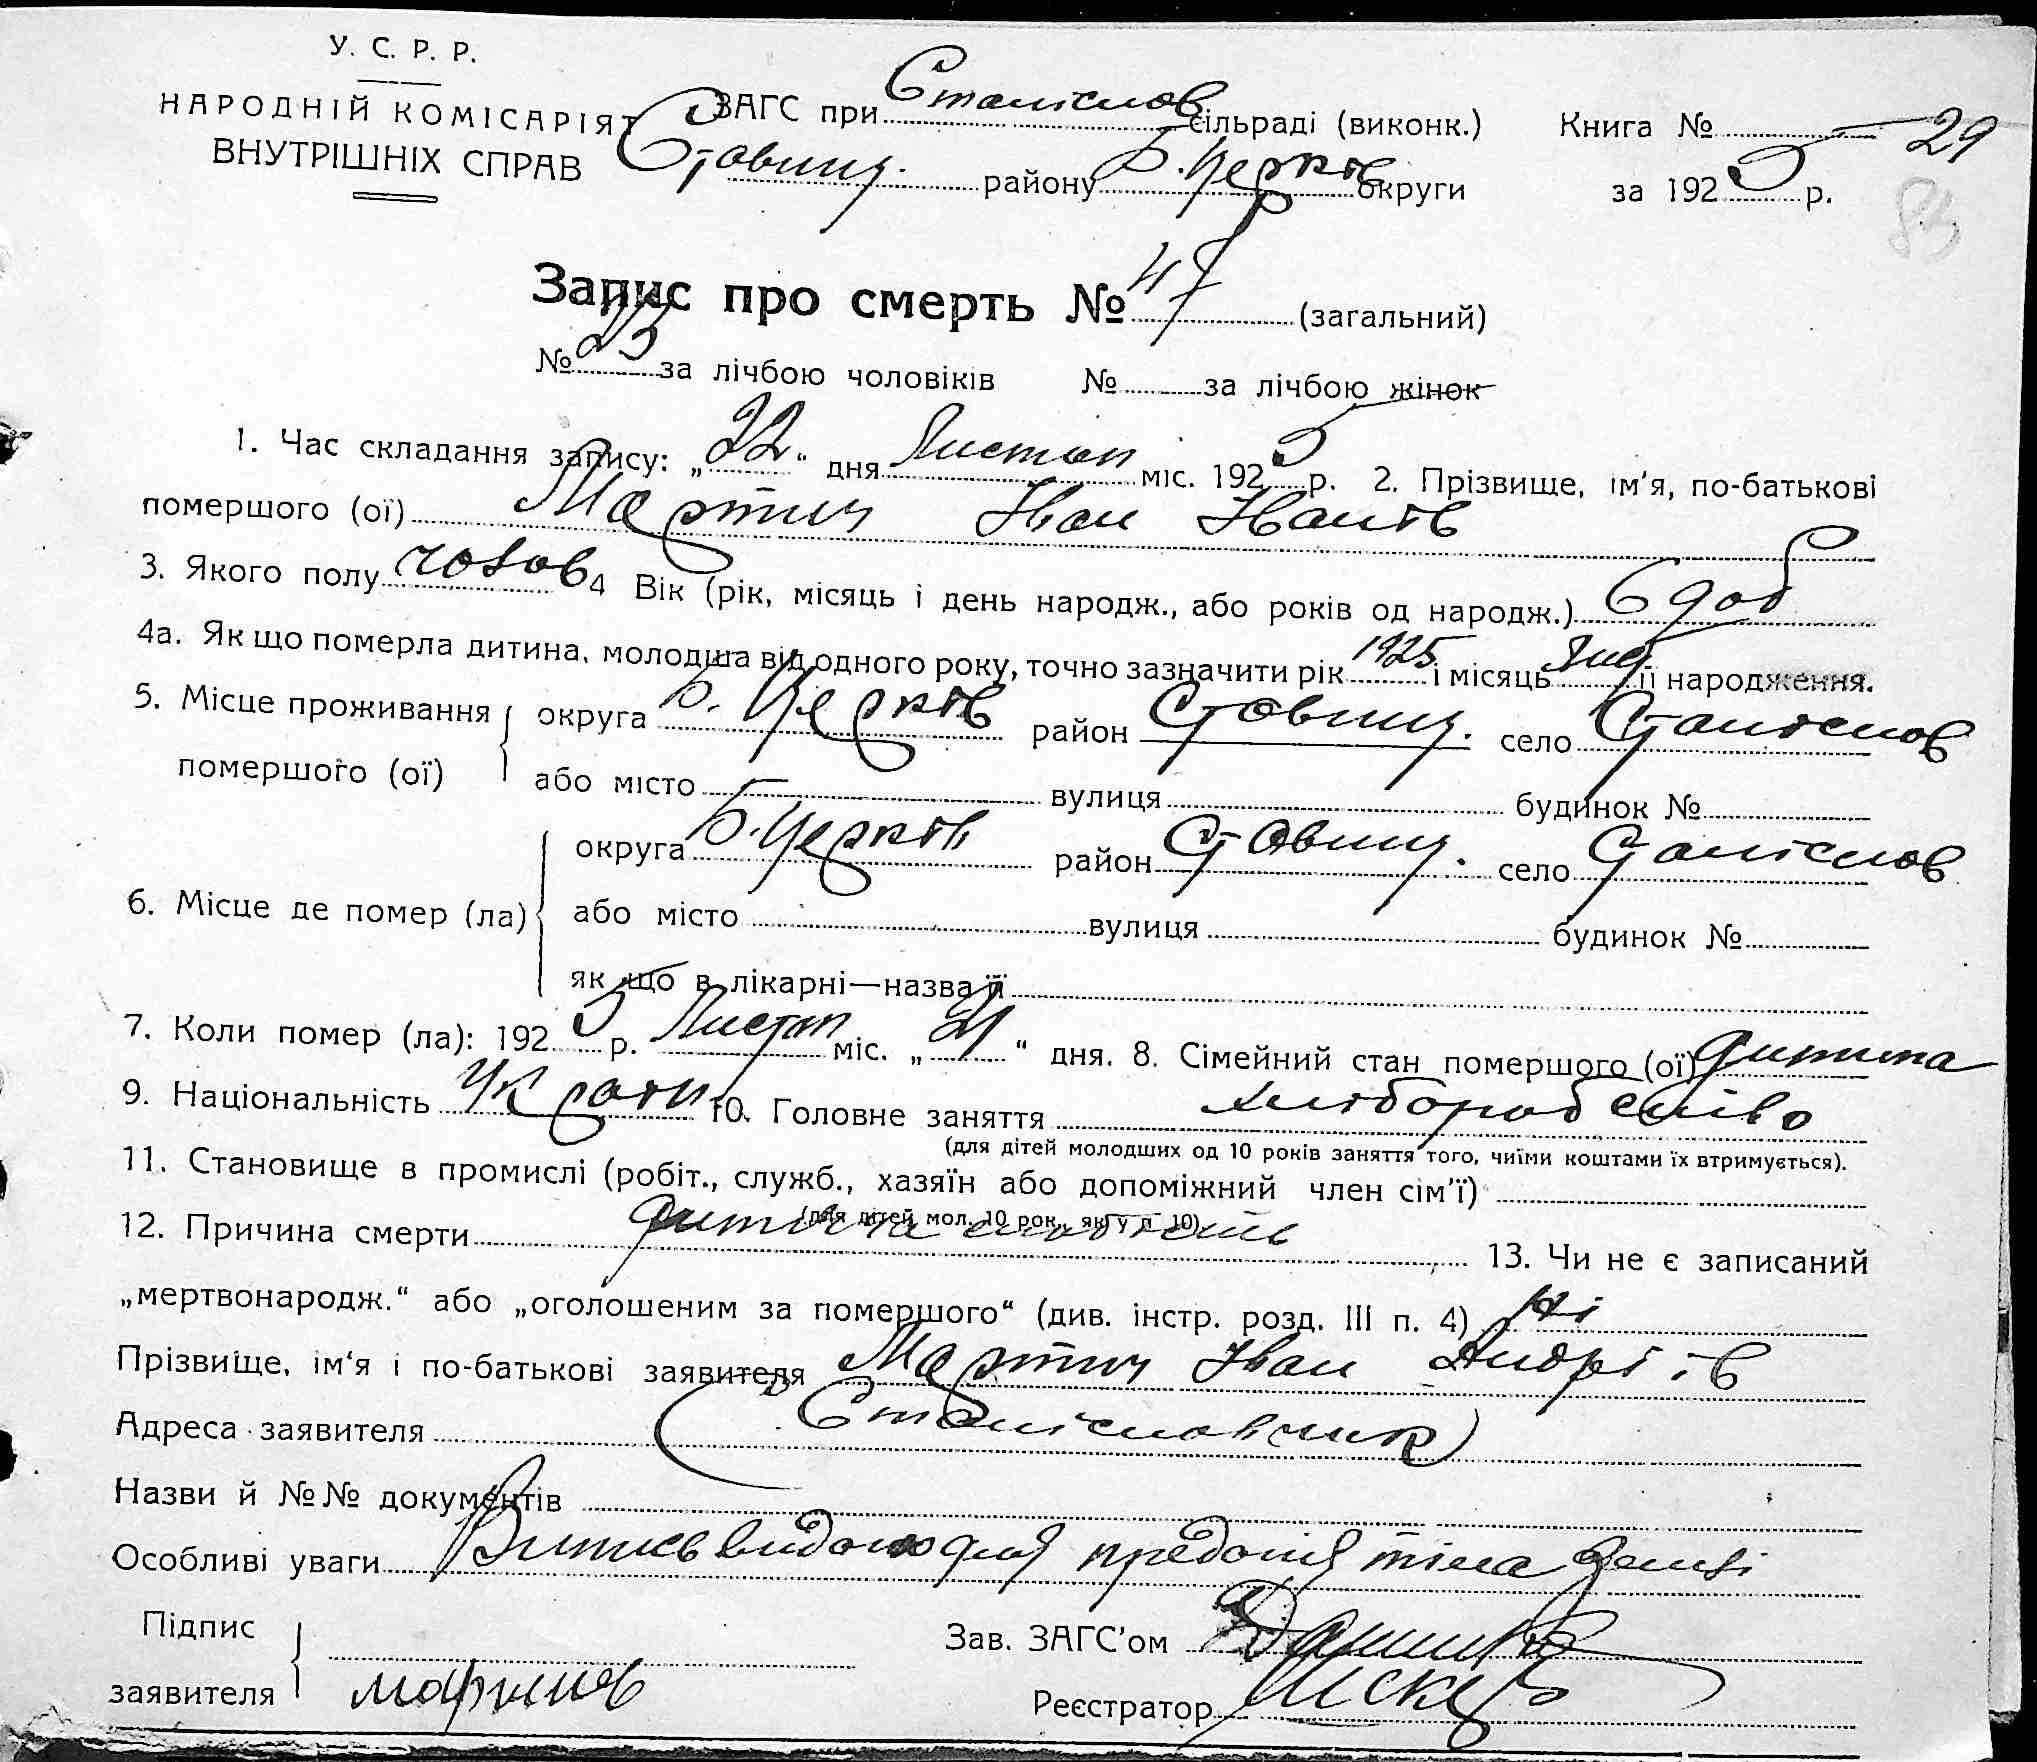 У. С. Р. Р.
НАРОДНІЙ КОМІСАРІЯТ
ВНУТРІШНІХ СПРАВ
ЗАГС при Станіслов сільраді (виконк.) Книга № 29
Ставищ. району Б. Церків округи за 1925 р.
83
Запис про смерть № 47 (загальний)
№ 25 за лічбою чоловіків № за лічбою жінок
1. Час складання запису: „22“ дня Листоп міс. 1925 р. 2. Прізвище, ім'я, по-батькові
помершого (ої) Мартич Іван Іванів
3. Якого полу чолов 4 Вік (рік, місяць і день народж., або років од народж.) 6 доб
4а. Як що померла дитина, молодша від одного року, точно зазначити рік 1925 і місяць її народження.
5. Місце проживання помершого (ої) округа Б. Церків район Ставищ. село Станіслов
або місто вулиця будинок №
6. Місце де помер (ла) округа Б. Церків район Ставищ. село Станіслов
або місто вулиця будинок №
як що в лікарні—назва її
7. Коли помер (ла): 1925 р. Листоп міс. „21“ дня. 8. Сімейний стан помершого (ої) дитина
9. Національність Україн 10. Головне заняття хліборобство
(для дітей молодших од 10 років заняття того, чиїми коштами їх втримується).
11. Становище в промислі (робіт., служб., хазяїн або допоміжний член сім'ї)
(для дітей мол. 10 рок., як у п. 10)
12. Причина смерти дитяча слабість 13. Чи не є записаний
„мертвонародж.“ або „оголошеним за помершого“ (див. інстр. розд. III п. 4) ні
Прізвище, ім'я і по-батькові заявителя Мартич Іван Андріїв
Адреса заявителя (Станіславчик)
Назви й №№ документів
Особливі уваги Випись видано для предання тіла землі
Підпис заявителя
Зав. ЗАГС'ом
Реєстратор